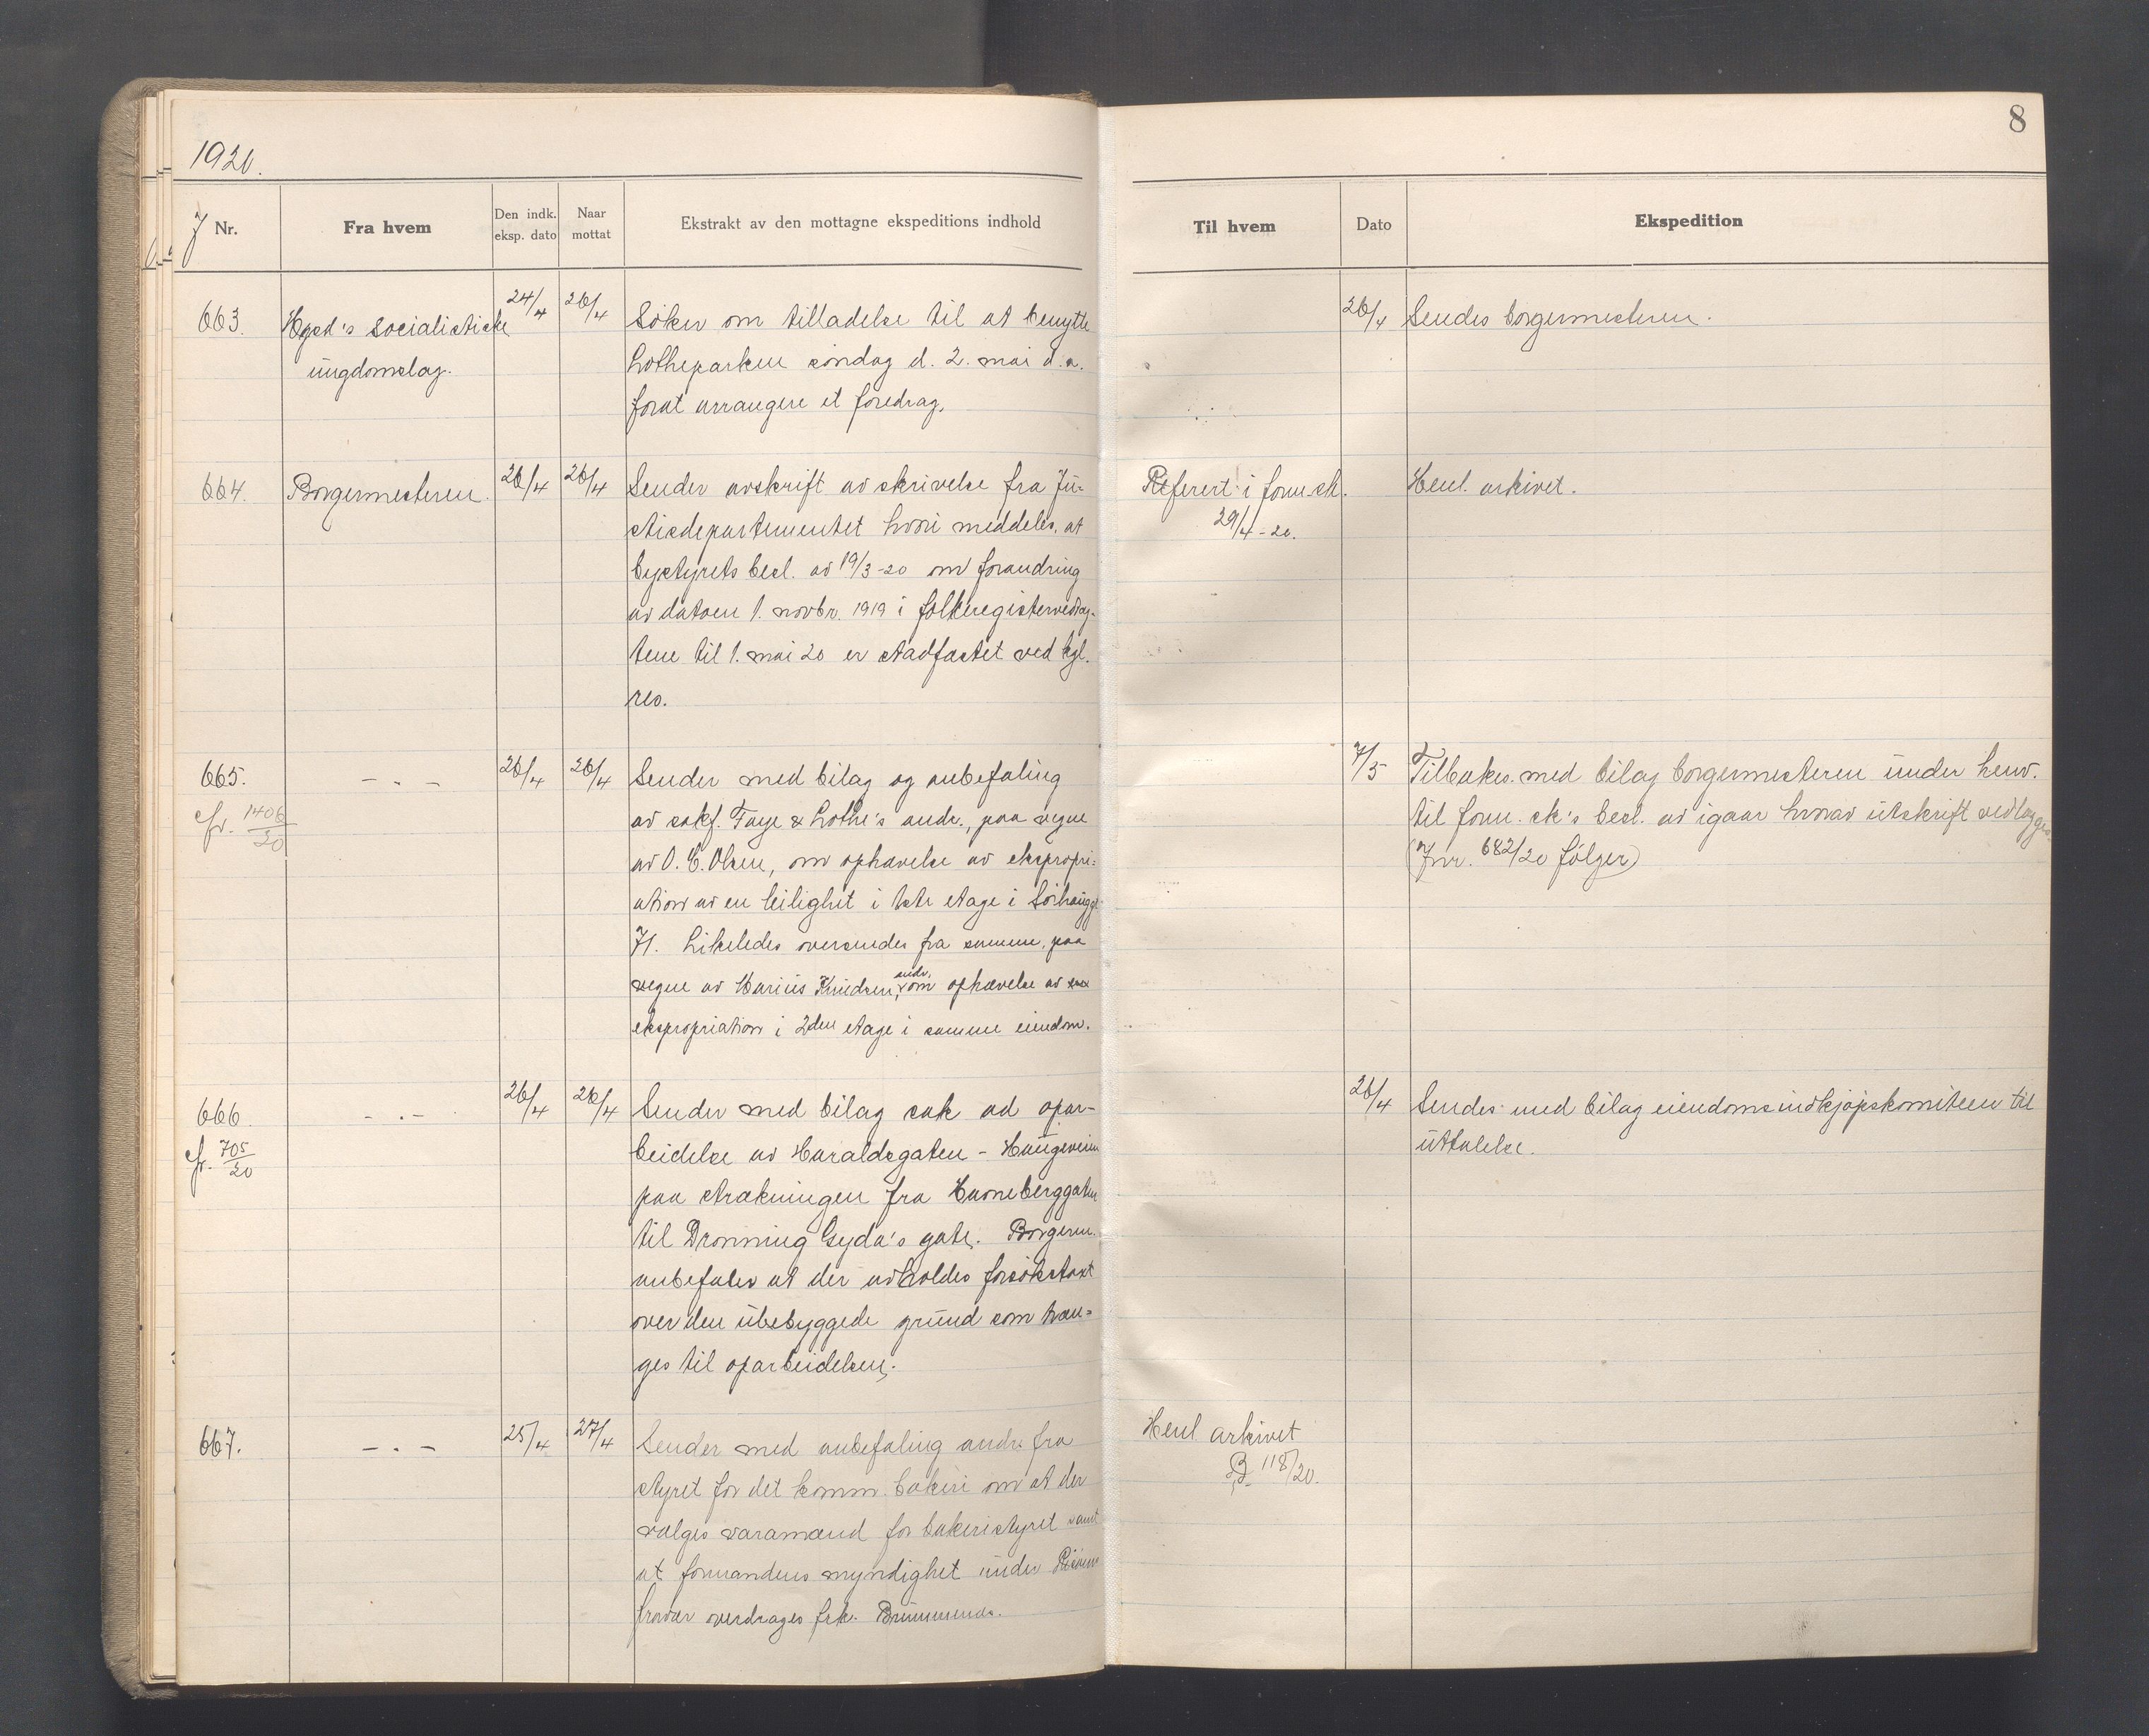 8
1920.
J Nr.
Fra hvem
Den indk. eksp. dato
Naar mottat
Ekstrakt av den mottagne ekspeditions indhold
Til hvem
Dato
Ekspedition
663. Hgsd's socialistiske 24/4 26/4 Søker om tilladelse til at benytte
ungdomslag. Lotheparken søndag d. 2. mai d.a.
forat arrangere et foredrag.
26/4 Sendes borgermesteren.
664. Borgermesteren. 26/4 26/4 Sender avskrift av skrivelse fra Ju-
sticedepartementet hvori meddeles, at
bystyrets besl. av 19/3-20 om forandring
av datoen 1. novbr. 1919 i folkeregistervedtæg-
tene til 1. mai 20 er stadfæstet ved kgl.
res.
Referert i form.sk. Henl. arkivet.
29/4-20.
665. - . - 26/4 26/4 Sender med bilag og anbefaling
cfr. 1406/20 av sakf. Faye & Lothe's andr., paa vegne
av O. E. Olsen, om ophævelse av ekspropri-
ation av en leilighet i 1ste etage i Sørhauggt.
71. Likeledes oversendes fra samme, paa
vegne av Marius Knudsen, andr. om ophævelse av
ekspropriation i 2den etage i samme eiendom.
7/5 Tilbakes. med bilag borgermesteren under henv.
til form.sk's besl. av igaar hvorav utskrift vedlægges
(Jnr. 682/20 følger)
666. - . - 26/4 26/4 Sender med bilag sak ad opar-
cfr. 705/20 beidelse av Haraldsgaten - Haugeveien
paa strækningen fra Havneberggaten
til Dronning Gyda's gate. Borgerm.
anbefaler at der avholdes forsøkstaxt
over den ubebyggede grund som træn-
ges til oparbeidelsen.
26/4 Sendes med bilag eiendomsindkjøpskomiteen til
uttalelse.
667. - . - 25/4 27/4 Sender med anbefaling andr. fra
styret for det komm. bakeri om at der
vælges varamænd for bakeristyret samt
at formandens myndighet under
fravær overdrages frk.
Henl arkivet
B 118/20.